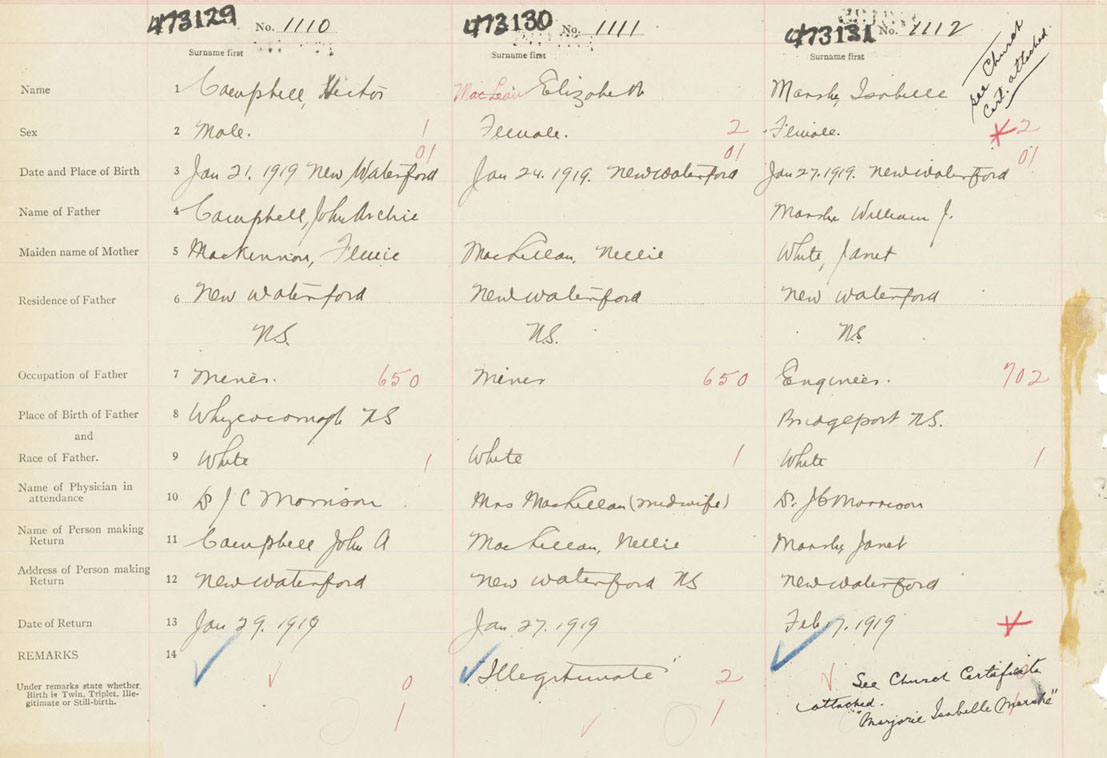 473129 No. 1110 473130 No. 1111 473131 No. 1112
Surname first Surname first Surname first
See Church Cert. attached.
Name 1 Campbell, Victor MacLean Elizabeth Marsh, Isabelle
Sex 2 Male. 1 Female. 2 Female. 2
01 01 01
Date and Place of Birth 3 Jan 21. 1919 New Waterford Jan 24. 1919. New Waterford Jan 27. 1919. New Waterford
Name of Father 4 Campbell, John Archie Marsh William J.
Maiden name of Mother 5 MacKinnon, Nellie
White, Janet
Residence of Father 6 New Waterford New Waterford New Waterford
N.S. N.S. N.S.
Occupation of Father 7 Miner. 650 Miner 650 Engineer. 702
Place of Birth of Father 8 Whycocomagh NS Bridgeport N.S.
and
Race of Father. 9 White 1 White 1 White 1
Name of Physician in
attendance 10 Dr J C Morrison Mrs (midwife) Dr. JC Morrison
Name of Person making
Return 11 Campbell John A Nellie Marsh, Janet
Address of Person making
Return 12 New Waterford New Waterford NS New Waterford
Date of Return 13 Jan 29. 1919 Jan 27. 1919 Feb 7. 1919
REMARKS 14
Under remarks state whether
Birth is Twin, Triplet, Ille-
gitimate or Still-birth.
0 "Illegitimate" 2 See Church Certificate
1 1 attached.
"Marjorie Isabelle Marsh"